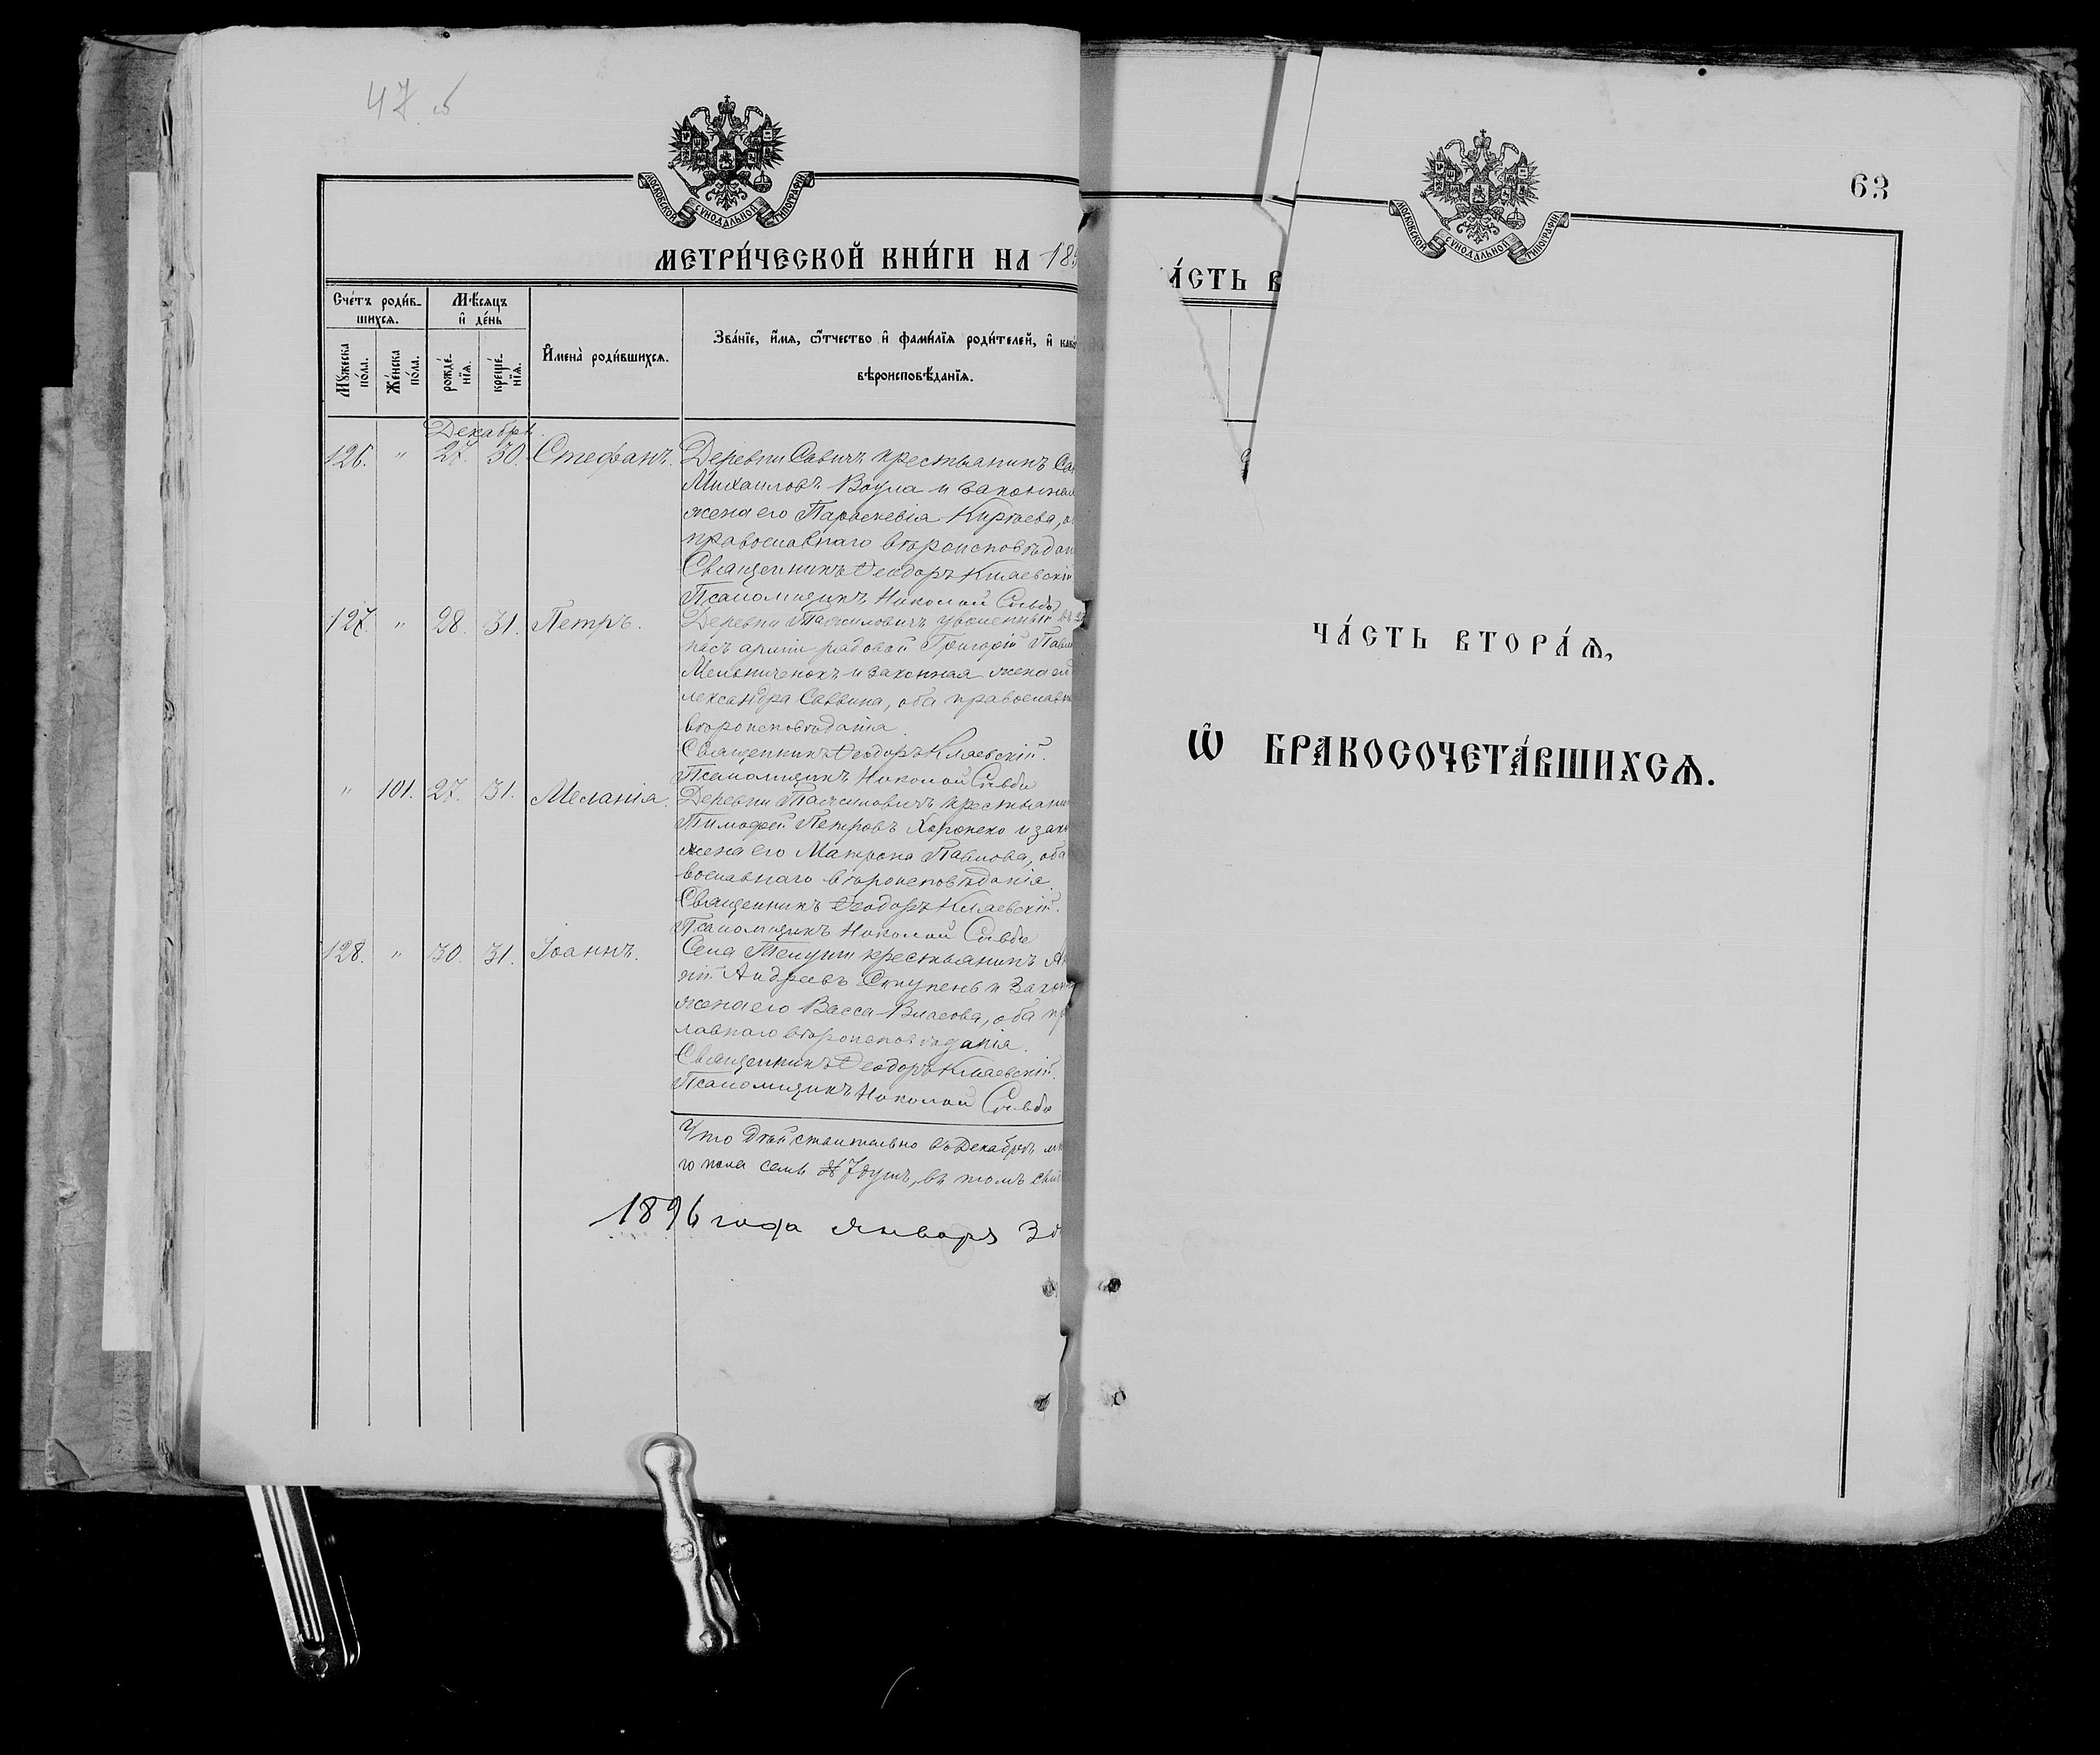 47 б
МОСКОВСКОЙ СУНОДАЛЬНОЙ ТИПОГРАФІИ
МЕТРИ́ЧЕСКОЙ КНИ́ГИ НА 189
Счéтъ роди́в-
шихся.
Мѣ́сяцъ
и҆ де́нь
Му́жеска
по́ла.
Же́нска
по́ла.
рожде́-
нїя.
креще́-
нїя.
И҆мена̀ роди́вшихся.
Зва́нїе, и҆́мя, ѻ҆́тчество и҆ фами́лїя роди́телей, и҆ како
вѣроисповѣ́данїя.
Декабрь.
126. " 27. 30. Стефанъ. Деревни Савичъ крестьянинъ Са
Михаиловъ Воула и законная
жена его Параскевія Киріева, о
православнаго вѣроисповѣдан
Священникъ Ѳеодоръ Кляевскій
Псаломщикъ Николай
127. " 28. 31. Петръ. Деревни уволенный въ
пасъ арміи рядовой Григорій Павл
Мельниченокъ и законная жена его
лександра Саввина, оба православн
вѣроисповѣданія.
Священникъ Ѳеодоръ Кляевскій.
Псаломщикъ Николай
" 101. 27. 31. Меланія. Деревни крестьянин
Тимоѳей Петровъ Хоронеко и зако
жена его Матрона Павлова, оба
вославнаго вѣроисповѣданія.
Священникъ Ѳеодоръ Кляевскій.
Псаломщикъ Николай
128. " 30. 31. Іоаннъ. Села Телуши крестьянинъ
Андреевъ Ступень и закон
жена его Васса Власова, оба пр
лавнаго вѣроисповѣданія.
Священникъ Ѳеодоръ Кляевскій.
Псаломщикъ Николай
Что дѣйствительно въ Декабрѣ м
го пола семь 7 душъ, въ томъ сви
1896 года января 3 д
А́СТЬ В
63
МОСКОВСКОЙ СУНОДАЛЬНОЙ ТИПОГРАФІИ
ЧА́СТЬ ВТОРА́Я,
Ѽ БРАКОСОЧЕТА́ВШИХСЯ.